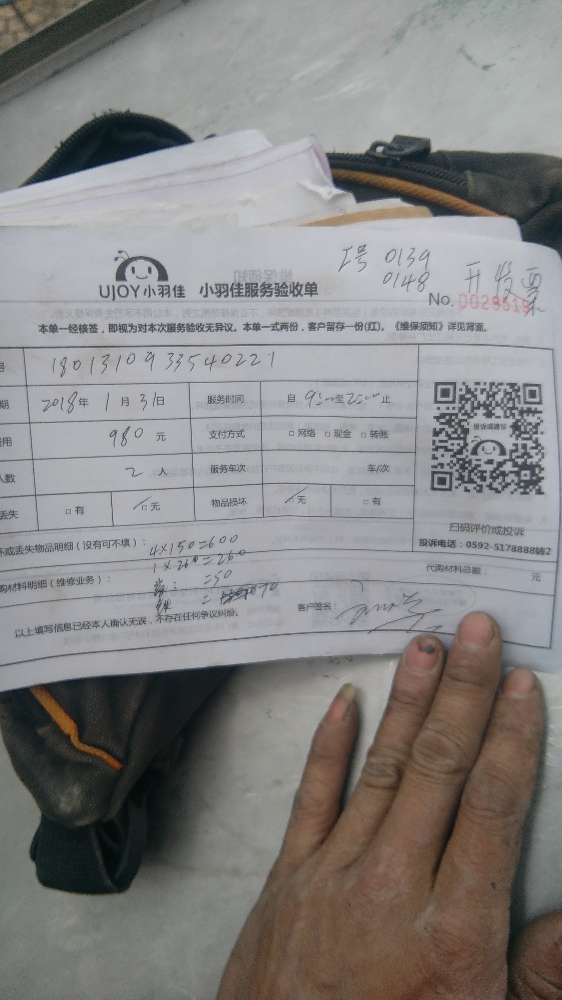 工号 0139
0148 开发票
UJOY小羽佳 小羽佳服务验收单
No.
本单一经核签，即视为对本次服务验收无异议。本单一式两份，客户留存一份(红)。《维保须知》详见背面。
号 1801310933540221
期 2018年 1月31日 服务时间 自 至 止
费用 980 元 支付方式 □网络 □现金 □转账
人数 2 人 服务车次 车/次
丢失 □有 □无 物品损坏 □无 □有
投诉或建议
扫码评价或投诉
投诉电话：0592-5178888转2
坏或丢失物品明细（没有可不填）：
4×150=600
1×260=260
购材料明细（维修业务）： =50
= 70
代购材料总额 元
以上填写信息已经本人确认无误，不存在任何争议纠纷。 客户签名：